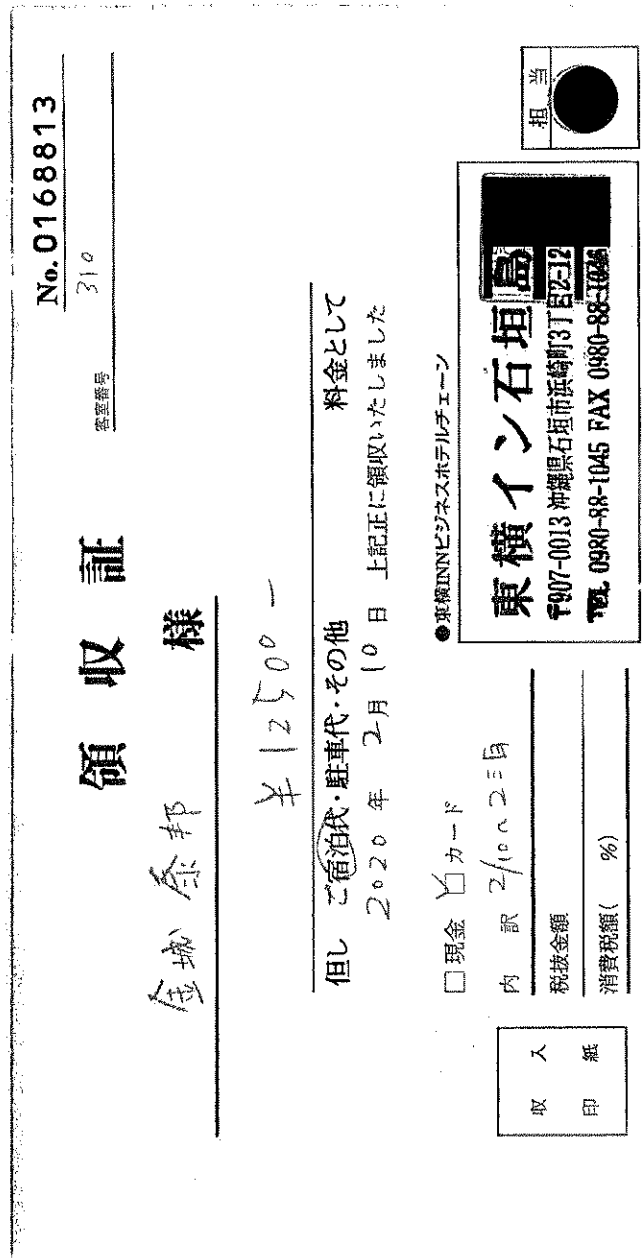 No. 0168813
客室番号 310
領収証
金城 泰邦 様
¥12500-
但し ご宿泊代・駐車代・その他 料金として
2020年 2月 10日 上記正に領収いたしました
□現金 ☑カード
内 訳 2/10〜2泊
税抜金額
消費税額( %)
収 入
印 紙
●東横INNビジネスホテルチェーン
東横イン石垣島
〒907-0013 沖縄県石垣市浜崎町3丁目2-12
TEL 0980-88-1045 FAX 0980-88-1046
担 当